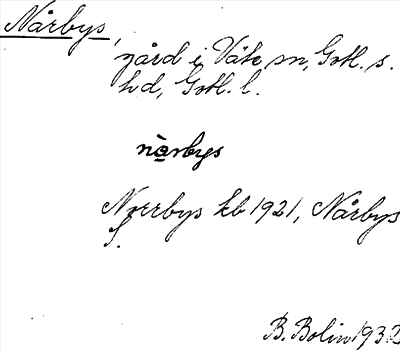 Nårbys,
gård i Väte sn, Gotl. s.
hd, Gotl. l.
nårbys
Norrbys kb 1921, Nårbys
S.
B. Bolin 1932